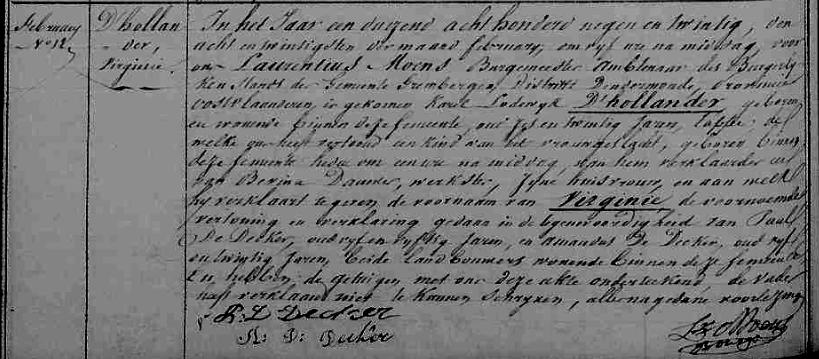 February
N° 12
D'hollan
der,
Virginie.
In het Jaar een duyzend acht honderd negen en twintig, den
acht en twintigsten der maand february, om vyf ure na middag, voor
ons Laurentius Moens Burgemeester Ambtenaar des Burgerly
ken Stands der Gemeente Grembergen Distrikt Dendermonde, provincie
oostvlaanderen, is gekomen Karel Lodewyk D'hollander, geboren
en wonende binnen deze gemeente, oud zes en twintig Jaren, de
welke ons heeft vertoond een kind van het vrouwgeslacht, geboren binnen
deze gemeente heden om een ure na middag, van hem verklaarder en
van Daumer, werkster, zyne huisvrouw, en aan welk
hy verklaart te geven de voornaam van Virginie de voornoemde
vertooning en verklaring gedaan in de tegenwoordigheid van Paul
De Decker, oud vyf en vyftig Jaren, en Amandus De Decker, oud vyf
en twintig Jaren, beide Landbouwers wonende binnen deze gemeente
En hebben de getuigen met ons deze akte onderteekend, de vader
heeft verklaard niet te konnen schryven, alles na gedane voorlezing
P. J. Decker
A: D: Decker
Moens